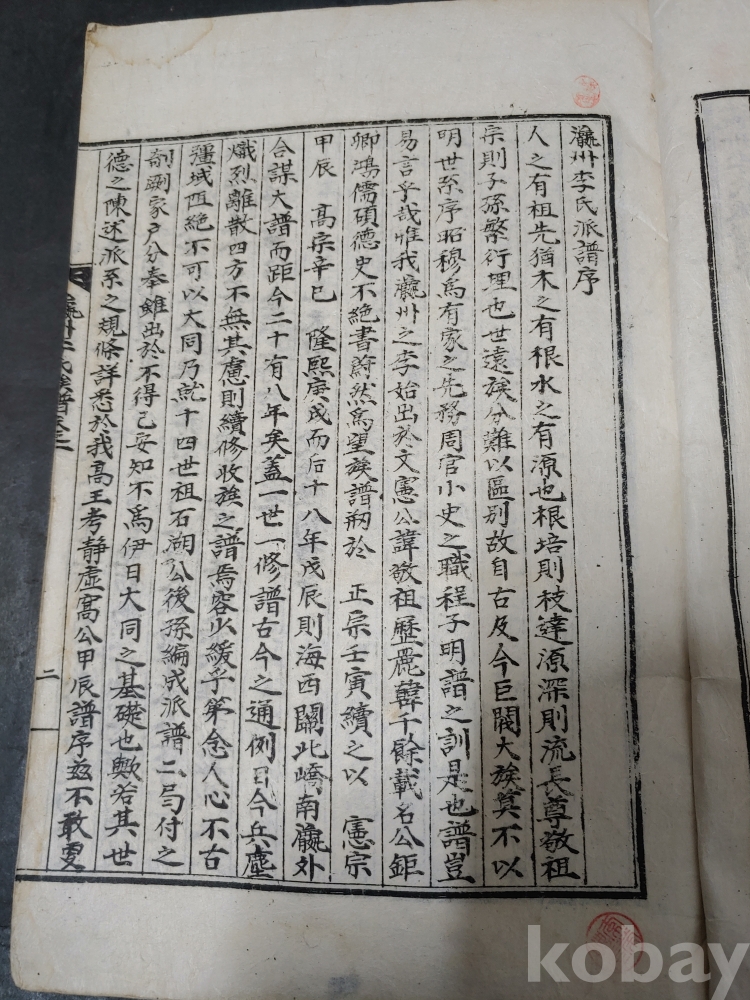 瀛州李氏派譜序
人之有祖先猶木之有根水之有源也根培則枝達源深則流長尊敬祖
宗則子孫繁衍理也世遠族分難以區別故自古及今巨閥大族莫不以
明世系序昭穆爲有家之先務周官小史之職程子明譜之訓是也譜豈
易言乎哉惟我瀛州之李始出於文憲公諱敬祖歷麗韓千餘載名公鉅
卿鴻儒碩德史不絶書蔚然爲望族譜刱於 正宗壬寅續之以 憲宗
甲辰 高宗辛巳 隆熙庚戌而后十八年戊辰則海西關北嶠南瀛外
合謀大譜而距今二十有八年矣蓋一世一修譜古今之通例目今兵塵
熾烈離散四方不無其慮則續修收族之譜焉容少緩乎第念人心不古
疆域阻絶不可以大同乃就十四世祖石湖公後孫編成派譜二局付之
剞劂家戶分奉雖出於不得已安知不爲伊日大同之基礎也歟若其世
德之陳述派系之規條詳悉於我高王考靜虛窩公甲辰譜序玆不敢更
瀛州李氏族譜卷之二
二
kobay